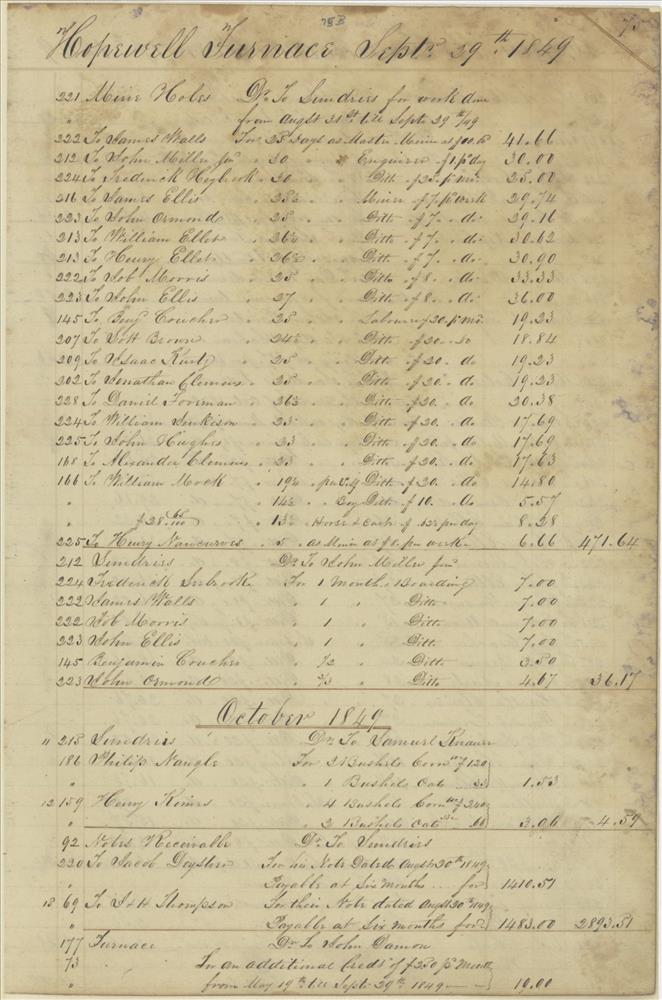 73
Hopewell Furnace Septr 29th 1849
221 Mine Holes Dr To Sundries for work done
" from Augst 31st till Septr 29th/49
222 To James Walls For 25 Days as Master Miner at 41.66
212 To John Miller Jnr " 30 " " Engineer $1 pr day 30.00
224 To Frederick " 30 " " Ditto $25 pr mo. 25.00
216 To James Ellis " 25½ " " Miner $7 pr week 29.74
223 To John Ormond " 25 " " Ditto $7 " do 29.16
213 To William Ellet " 26¼ " " Ditto $7 " do 30.62
213 To Henry Ellet " 26½ " " Ditto $7 " do 30.90
222 To Job Morris " 25 " " Ditto $8 " do 33.33
223 To John Ellis " 27 " " Ditto $8 " do 36.00
145 To Benj Coucher " 25 " " Labourer $20 pr mo. 19.23
207 To Brown " 24½ " " Ditto $20 " do 18.84
209 To Isaac Kurtz " 25 " " Ditto $20 " do 19.23
202 To Jonathan Clemens " 25 " " Ditto $20 " do 19.23
228 To Daniel Foreman " 26½ " " Ditto $20 " do 20.38
224 To William Jenkison " 23 " " Ditto $20 " do 17.69
225 To John Hughes " 23 " " Ditto $20 " do 17.69
168 To Alexander Clemens " 23 " " Ditto $20 " do 17.63
166 To William Mock " 19¼ " pr self Ditto $20 " do 14.80
" " 14½ " Boy Ditto $10 " do 5.57
" $28.65 " 13¼ " Horse & Cart pr day 8.28
225 To Henry " 5 " as Miner at $8 pr week 6.66 471.64
212 Sundries Dr To John Miller Jnr
224 Frederick For 1 Months Boarding 7.00
222 James Walls " 1 " Ditto 7.00
222 Job Morris " 1 " Ditto 7.00
223 John Ellis " 1 " Ditto 7.00
145 Benjamin Coucher " 1/2 " Ditto 3.50
223 John Ormond " 2/3 " Ditto 4.67 36.17
October 1849
11 215 Sundries Dr To Samuel Knauer
186 Philip Naugle For 2 Bushels Corn $1.20
" " 1 Bushels Oats 33 1.53
12 159 Henry " 4 Bushels Corn $2.40
" " 2 Bushels Oats 66 3.06 4.59
92 Notes Receivable Dr To Sundries
220 To Jacob Deysher For his Note Dated Augst 30th 1849
" Payable at Six months for 1410.51
13 69 To Thompson For their Note dated Augst 30th 1849
" Payable at Six months for 1483.00 2893.51
177 Furnace Dr To John Damon
73 For an additional Credt of $2.50 pr Month
" from May 19th till Septr 29th 1849 10.00